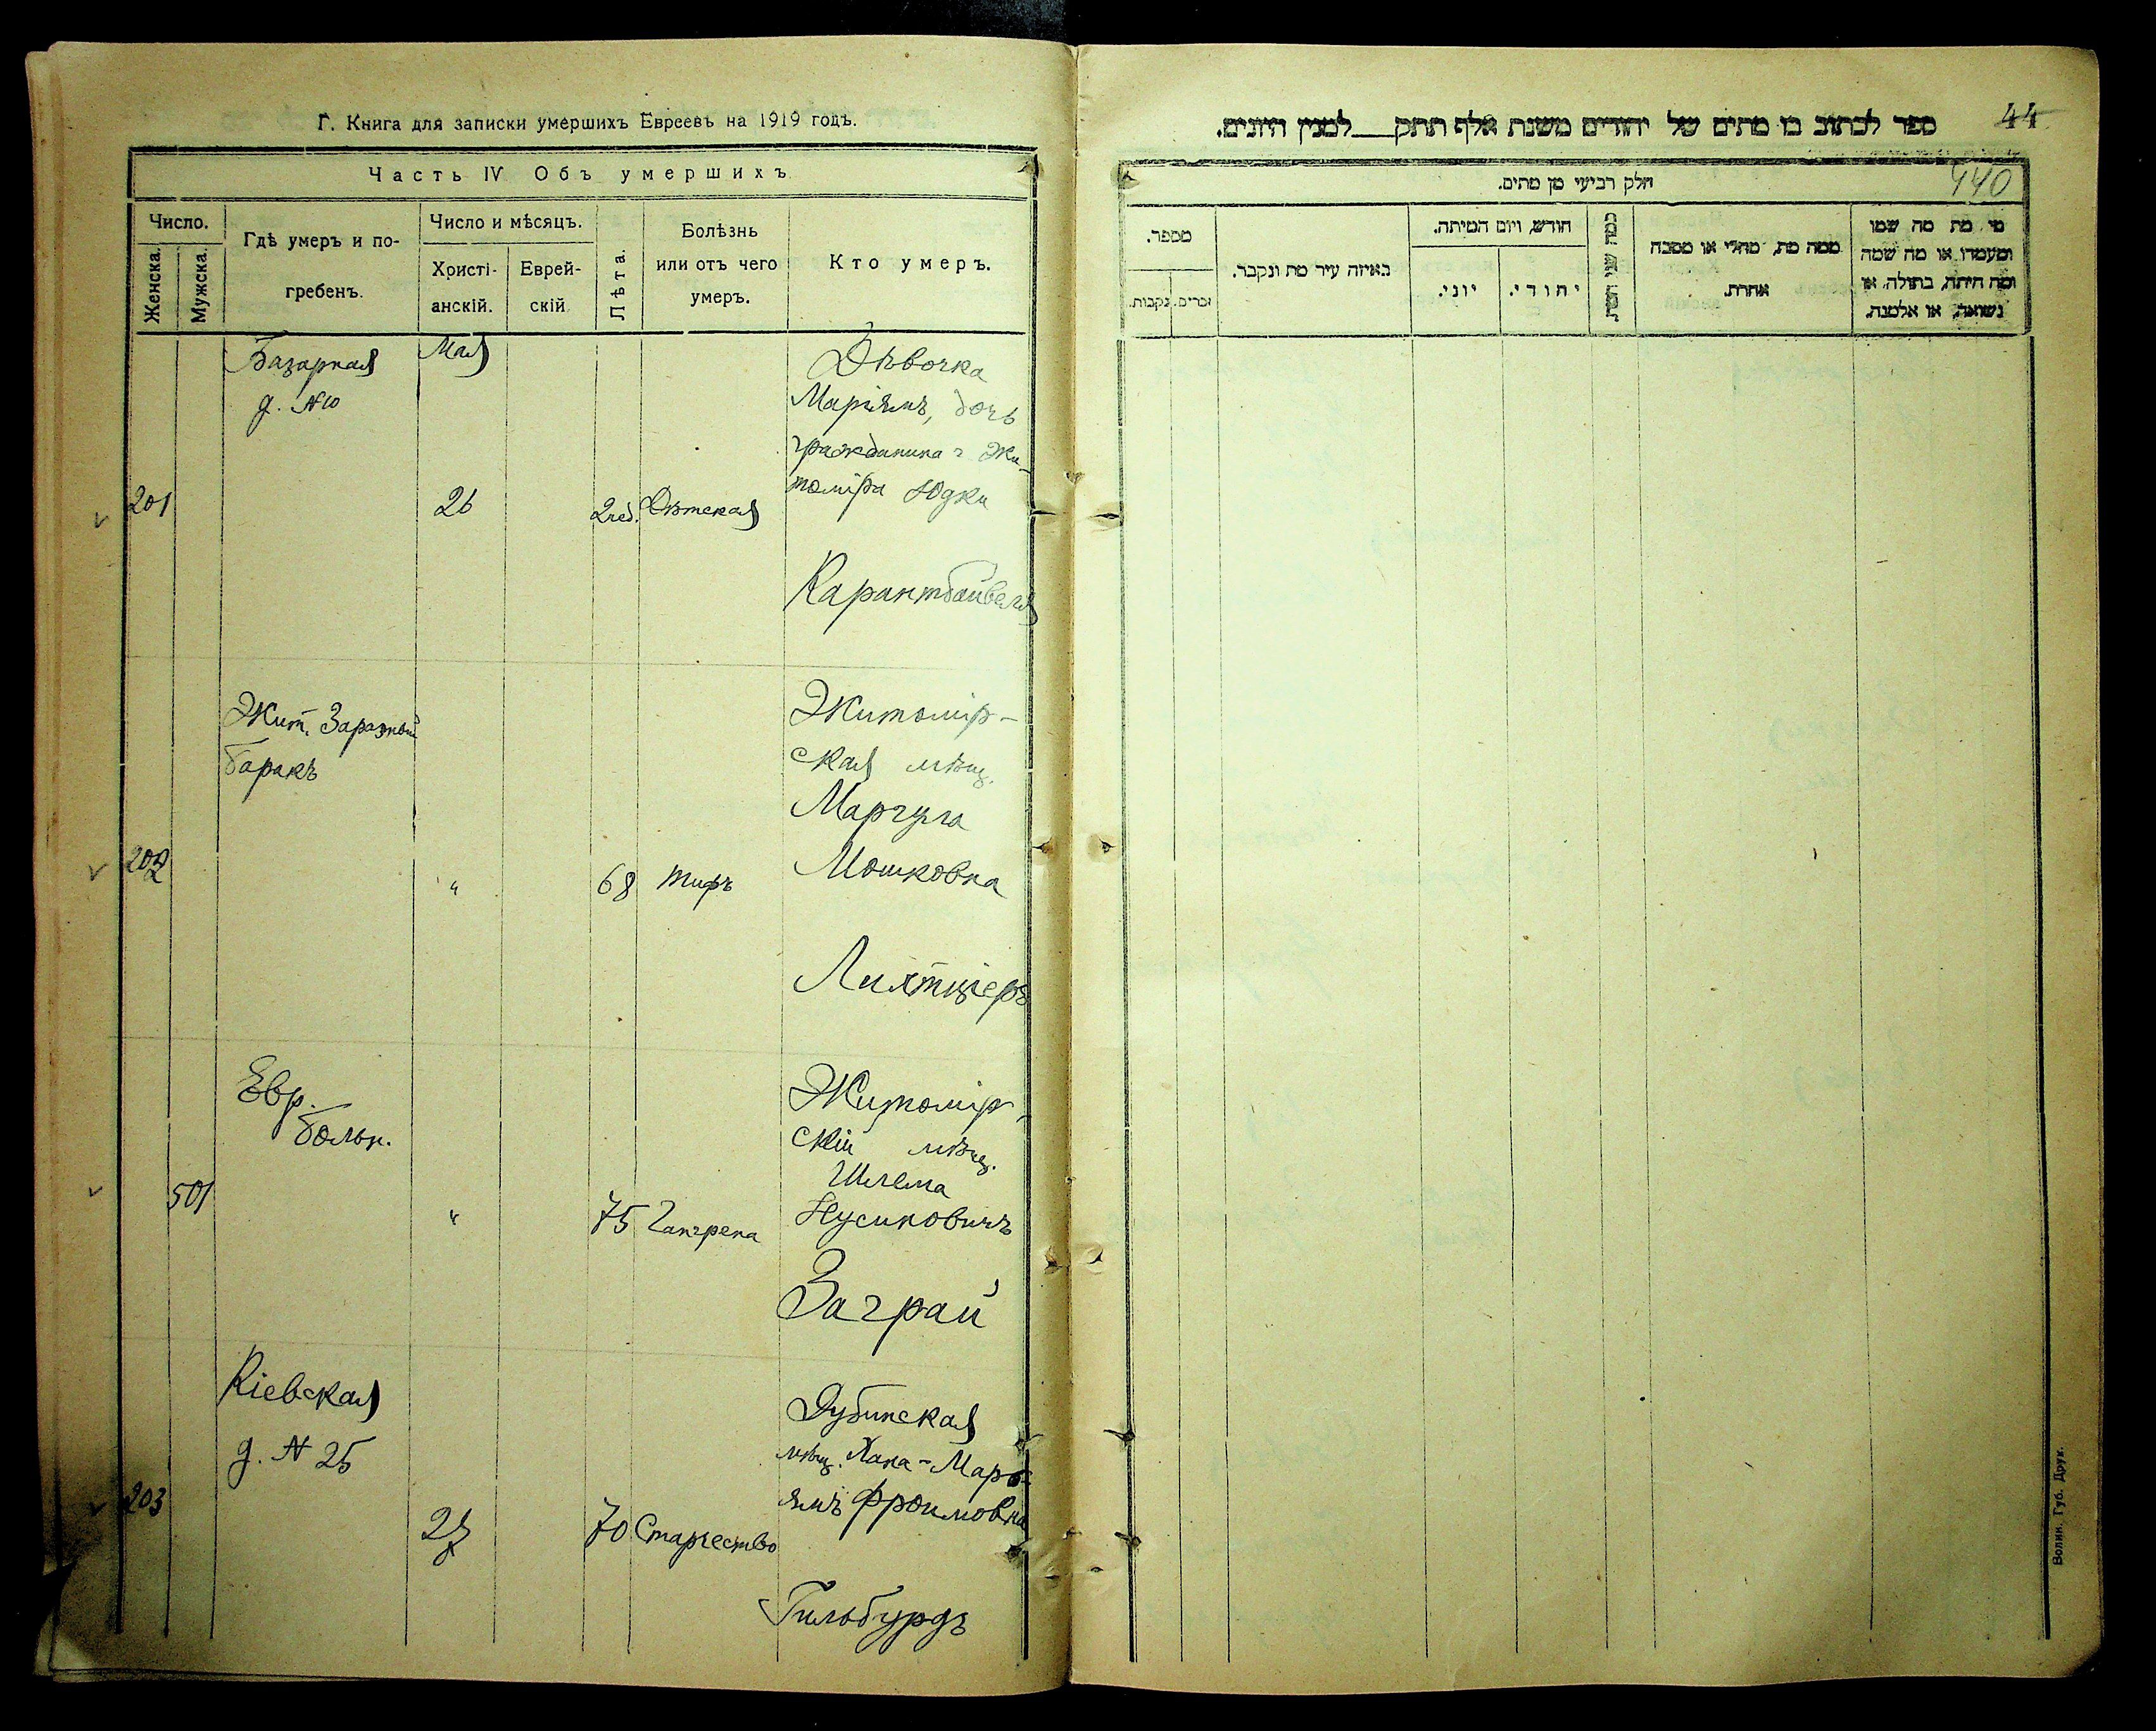 Г. Книга для записки умершихъ Евреевъ на 1919 годъ.
Часть IV Объ умершихъ
Число.
Женска.
Мужска.
Гдѣ умеръ и по-
гребенъ.
Число и мѣсяцъ.
Христі-
анскій.
Еврей-
скій
Лѣта.
Болѣзнь
или отъ чего
умеръ.
Кто умеръ.
Базарная
д. №10
Мая
201
26
2 нед.
Дѣтская
Дѣвочка
Маріямъ, дочь
гражданина г Жи-
томіра Юдки
Карантбайвеля
Жит. Заразный
баракъ
202
"
68
тифъ
Житомір-
ская мѣщ.
Маргула
Мошковна
Лихтціеръ
Евр.
больн.
501
"
75
Гангрена
Житомір-
скій мѣщ.
Шлема
Нусиновичъ
Заграй
Кіевская
д. № 25
203
27
70
Старчество
Дубинская
мѣщ. Хана-Марь-
ямъ Фроимовна
Гильбурдъ
44
ספר לכתוב בו מתים של יהודים משנת אלף תתק___למנין היונים.
440
חלק רביעי מן מתים.
מספר.
זכרים.
נקבות.
באיזה עיר מת ונקבר.
חודש, ויום המיתה.
יוני.
יהודי.
כמה שני המת
ממה מת, מחלי או מסבה
אחרת.
מי מת מה שמו
ומעמדו או מה שמה
ומה היתה, בתולה, או
נשואה, או אלמנה.
Волин. Губ. Друк.